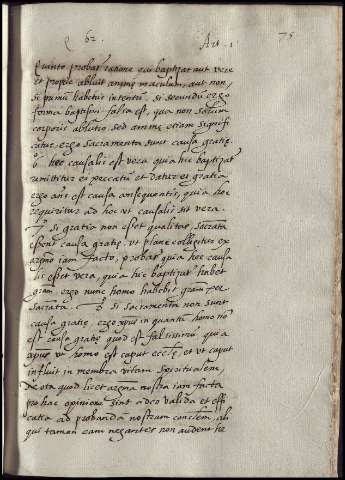 Q 62. Art. 1 75
Quarto probat ratione qui baptizat aut vere
et proprie abluit animę maculam, aut non,
si primum habetur intentum, si secundum ergo
forma baptismi falsa est, quia non solum
corporis ablutio sed animę etiam signifi
catur ergo sacramenta sunt causa gratię.
hęc causalis est vera quia hic baptizatʳ
remittitur ei peccatum et datur ei gratia
ergo an̄s est causa consequentis, quia hoc
requiritur ad hoc ut causalis sit vera.
si gratia non esset qualitas, sacramta
essent causa gratię, ut plane colligitur ex
argumto iam facto, probatr quia hęc causa
lis esset vera, quia hic baptizatr habet
gram ergo nunc homo habebit gram per
sacramta. si sacramenta non sunt
causa gratię, ergo xpus in quantum homo non
est causa gratię quod est falsissimum quia
xpus ut homo est caput ecclę, et ut caput
influit in membra vitam spiritualem,
Nota quod licet argumta nostra iam facta
pro hac opinione sint adeo valida et effi
catia ad probanda nostram conclem, ali
qui tamen eam negantes non audent ne